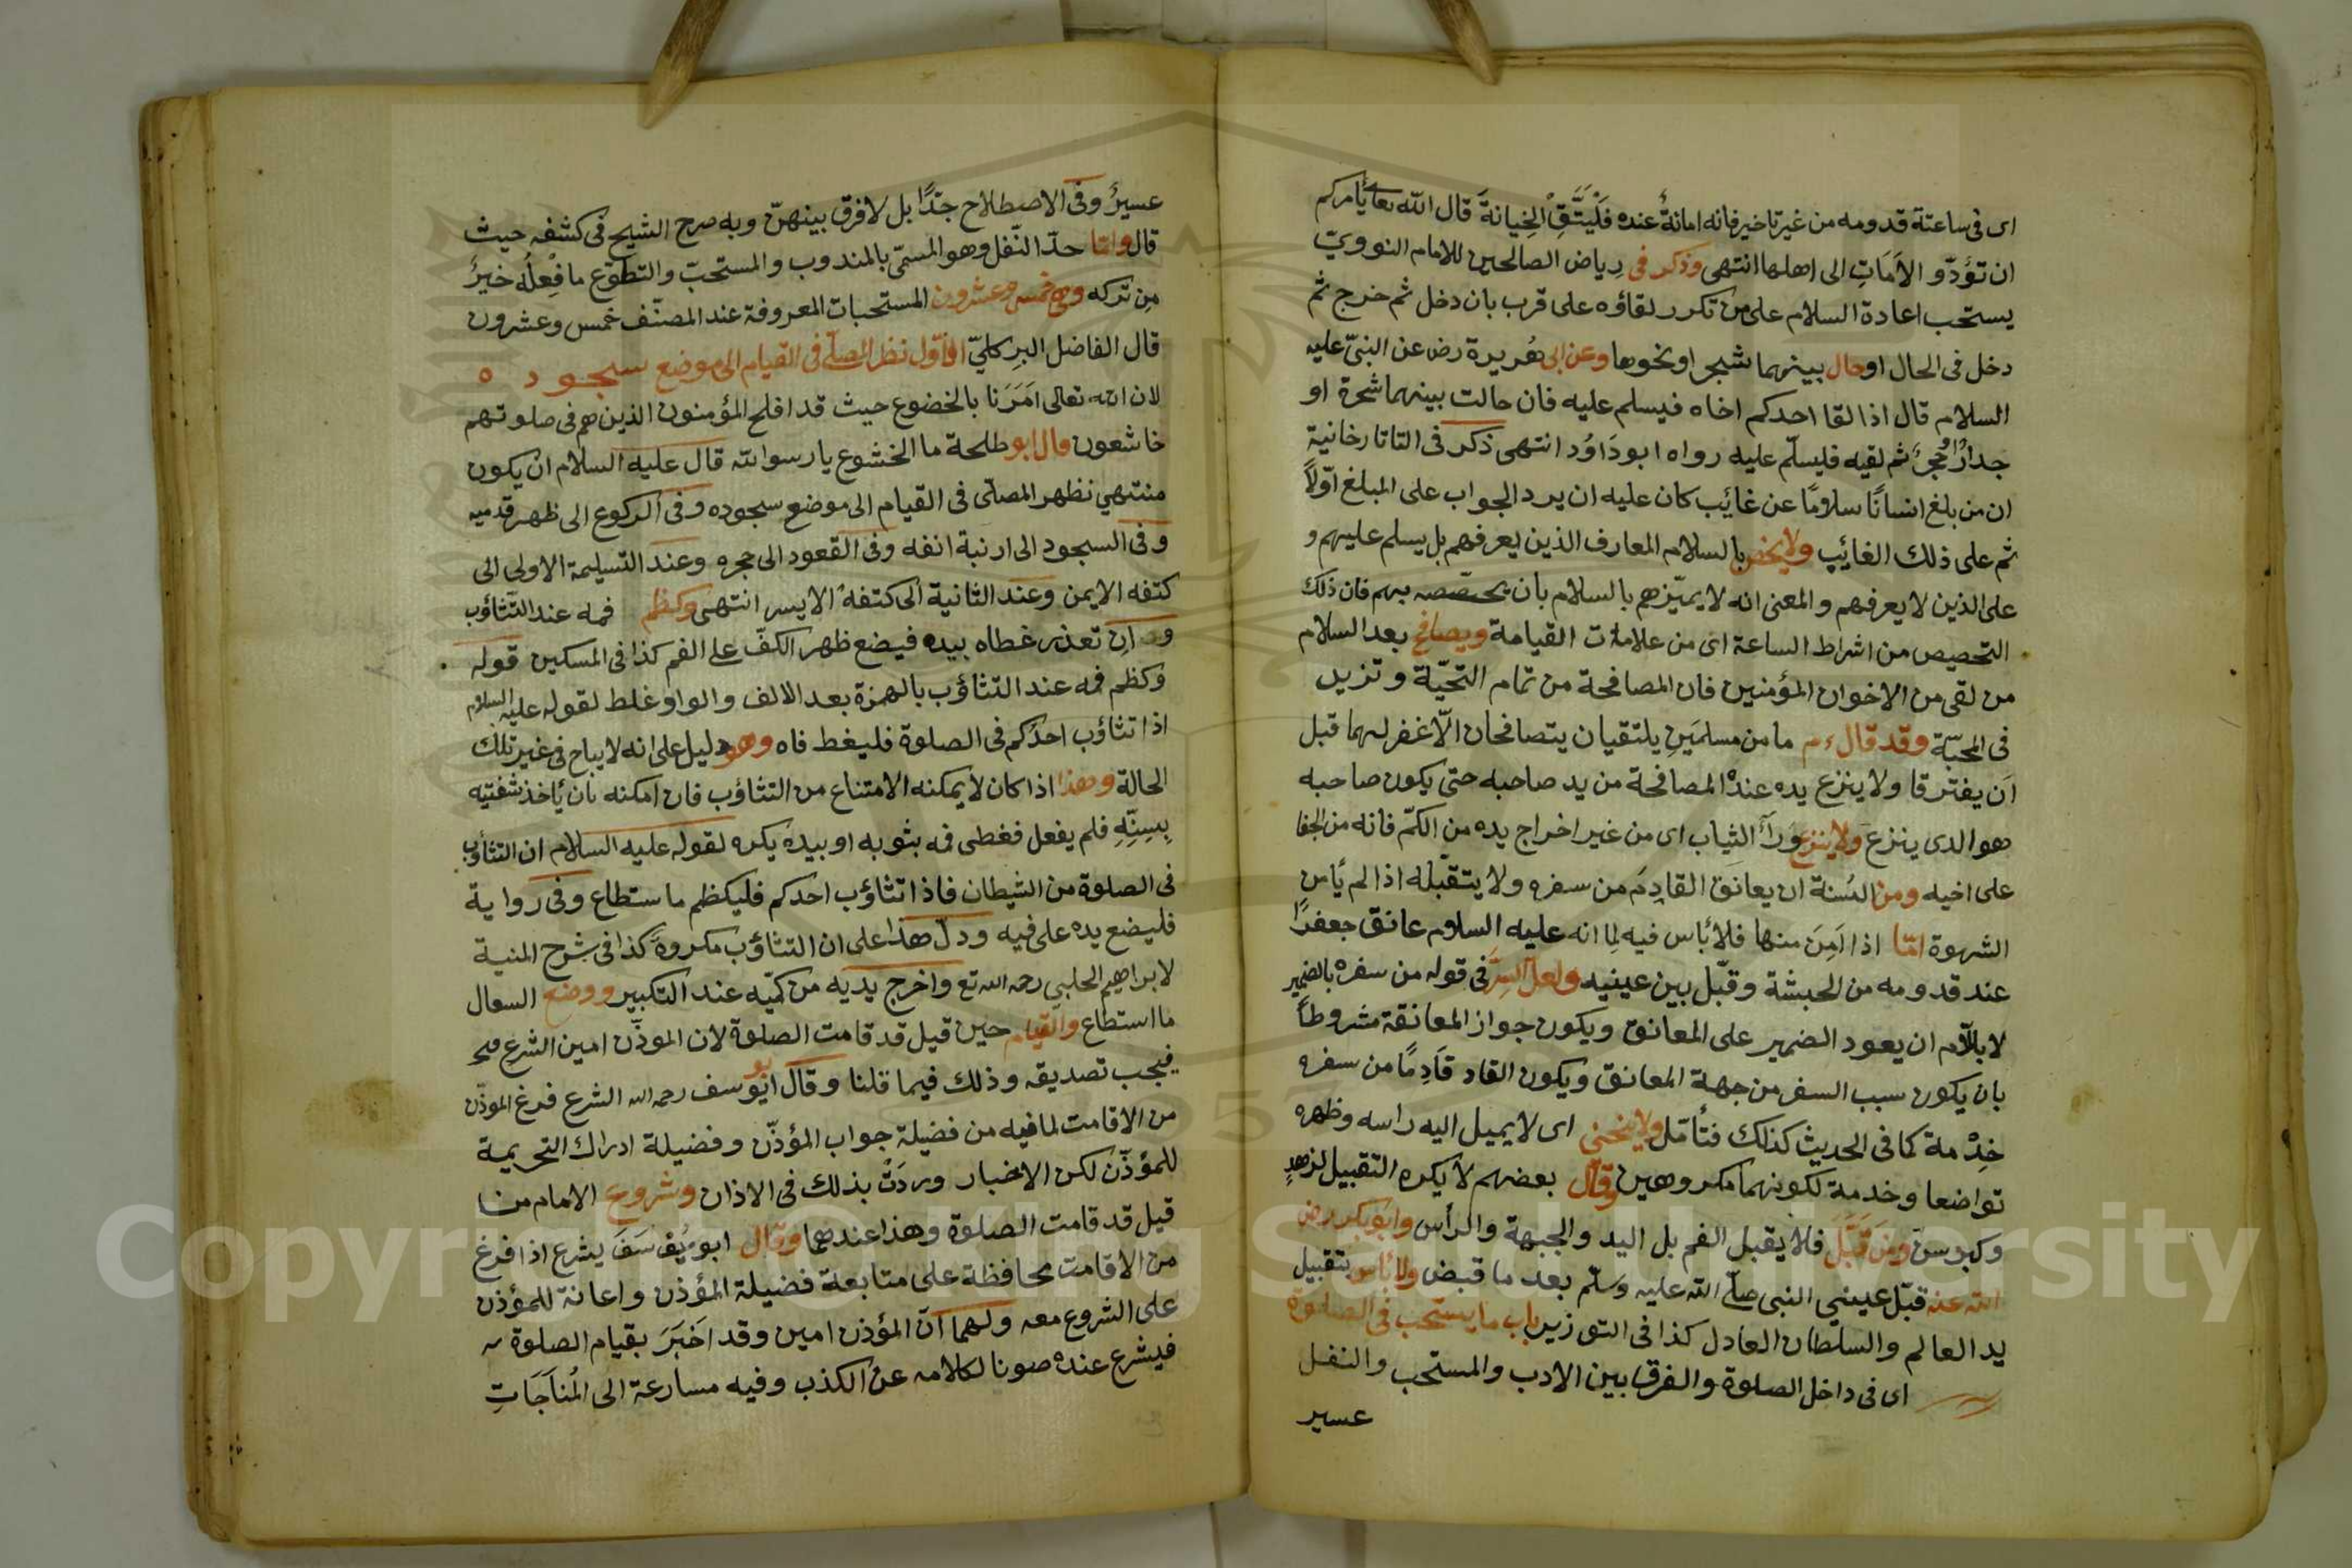 اى فى ساعتة قدومه من غير تاخير فانه امانةٌ عنده فَلْيَتَّقِ الخِيانةَ قال الله تعا يأمركم
ان تؤدّو الاَمَاتِ الى اهلها انتهى وذكر فى رياض الصالحين للامام النوويّ
يستحب اعادة السلام على من تكرر لقاؤه على قرب بان دخل ثم خرج ثم
دخل فى الحال او حال بينهما شجر او نحوها وعن ابى هُريرة رض عن النبىّ عليه
السلام قال اذا لقا احدكم اخاه فيسلم عليه فان حالت بينهما شجرة او
جدارٌ ثم لقيه فليسلّم عليه رواه ابو دَاوُد انتهى ذكر فى التاتارخانية
ان من بلغ انسانًا سلامًا عن غائِب كان عليه ان يرد الجواب على المبلغ اوّلاً
ثم على ذلك الغائِب ولا يخص بالسلام المعارف الذين يعرفهم بل يسلم عليهم و
على الذين لا يعرفهم والمعنى انه لا يميّزهم بالسلام بان يخصّصه بهم فان ذلك
التخصيص من اشراط الساعة اى من علامات القيامة ويصافح بعد السلام
من لقى من الاخوان المؤمنين فان المصافحة من تمام التحيّة وتزيد
فى المحبّة وقد قال ءم ما من مسلمَينِ يلتقيان يتصافحان الّا غفر لهما قبل
اَن يفترقا ولا ينزع يده عند المصافحة من يد صاحبه حتى يكون صاحبه
هو الدى ينزع ولا ينزع وَرآَ الثياب اى من غير اخراج يده من الكمّ فانه من الجفا
على اخيه ومن السُنة ان يعانق القادِمَ من سفره ولا يتقبله اذا لم يأمن
الشهوة امّا اذا اَمِنَ منها فلا بٔاس فيه لِما انه عليه السلام عانق جعفرًا
عند قدومه من الحبشة وقبّل بين عينيه ولعلّ السِرَّ فى قوله من سفره بالضمير
لا باللّام ان يعود الضمير على المعانق ويكون جواز المعانقة مشروطاً
بان يكون سبب السفر من جهة المعانق ويكون القاد قَادِمًا من سفره
خِدْمة كما فى الحديث كذلك فتأمّل ولا ينحنى اى لا يميل اليه راسه وظهره
تواضعا وخدمة لكونهما مكروهين وقال بعضهم لا يكره التقبيل لزهدٍ
وكبر سنّ ومَن قَبَّلَ فلا يقبل الفم بل اليد والجبهة والرأس وابو بكر رض
الله عنه قبّل عينىِ النبى صلّى الله عليه وسلّم بعد ما قبض ولا بٔاس بتقبيل
يد العالم والسلطان العادل كذا فى التوزير باب ما يستحب فى الصلوة
اى فى داخل الصلوة والفرق بين الادب والمستحب والنفل
عسير
عسيرٌ وفى الاصطلاح جدًّا بل لا فرق بينهنّ وبه صرح الشيح فى كشفِه حيث
قال وامّا حدّ النّفل وهو المسمّى بالمندوب والمستحبّ والتطوّع ما فِعلُه خيرٌ
مِن تركه وهى خمس وعشرون المستحبات المعروفة عند المصنّف خمس وعشرون
قال الفاضل البِركليّ الاوّل نظر المصلّى فى القيام الى موضع سجوده
لان الله تعالى اَمَرَنا بالخضوع حيث قد افلح المؤمنون الذين هم فى صلوتهم
خاشعون قال ابو طلحة ما الخشوع يا رسوالله قال عليه السلام ان يكون
منتهي نظهر المصلّى فى القيام الى موضع سجوده وفى الركوع الى ظهر قدميه
وفى السجود الى ارنبة انفه وفى القعود الى حجره وعند التسليمة الاولى الى
كتفه الايمن وعند الثانية الى كتفه الايسر انتهى وكظم فمه عند التّثاؤب
و ان تعذر غطاه بيده فيضع ظهر الكفّ على الفم كذا فى المسكين قوله
وكظم فمه عند التثاؤب بالهمزة بعد الالف والواو غلط لقوله عليه السلام
اذا تثاؤب احدُكم فى الصلوة فليغط فاه وهو دليل على انه لا يباح فى غير تلك
الحالة وهذا اذا كان لا يمكنه الامتناع من التثاؤب فان امكنه بان ئاخذ شفتيه
بِسِنِّهِ فلم يفعل فغطى فمه بثوبه او بيده يكره لقوله عليه السلام ان التثأوب
فى الصلوة من الشيطان فاذا تثاؤب احدكم فليكظم ما ستطاع وفى رواية
فليضع يده على فيه ودلّ هذا على ان التثاؤب مكروهٌ كذا فى شرح المنية
لابراهيم الحلبي رحمه الله تع واخرج يديه من كميّه عند التكبير ووضع السعال
ما استطاع والقيام حين قيل قد قامت الصلوة لان الموذّن امين الشرع
فيجب تصديقه وذلك فيما قلنا وقال ابو يوسف رحمه الله الشرع فرغ الموذّن
من الاقامت لما فيه من فضيلة جواب المؤذّن وفضيلة ادراك التحريمة
للمؤذّن لكن الاخبار وردَتْ بذلك فى الاذان وشروع الامام منا
قيل قد قامت الصلوة وهذا عندهما وقال ابو يُوسَفَ يشرع اذا فرغ
من الاقامت محافظة على متابعة فضيلة المؤذن واعانة للمؤذن
على الشروع معه ولهما انّ المؤذن امين وقد اَخبَرَ بقيام الصلوة
فيشرع عنده صونا لكلامه عن الكذب وفيه مسارعة الى المُناجَاتِ
Copyright © King Saud University